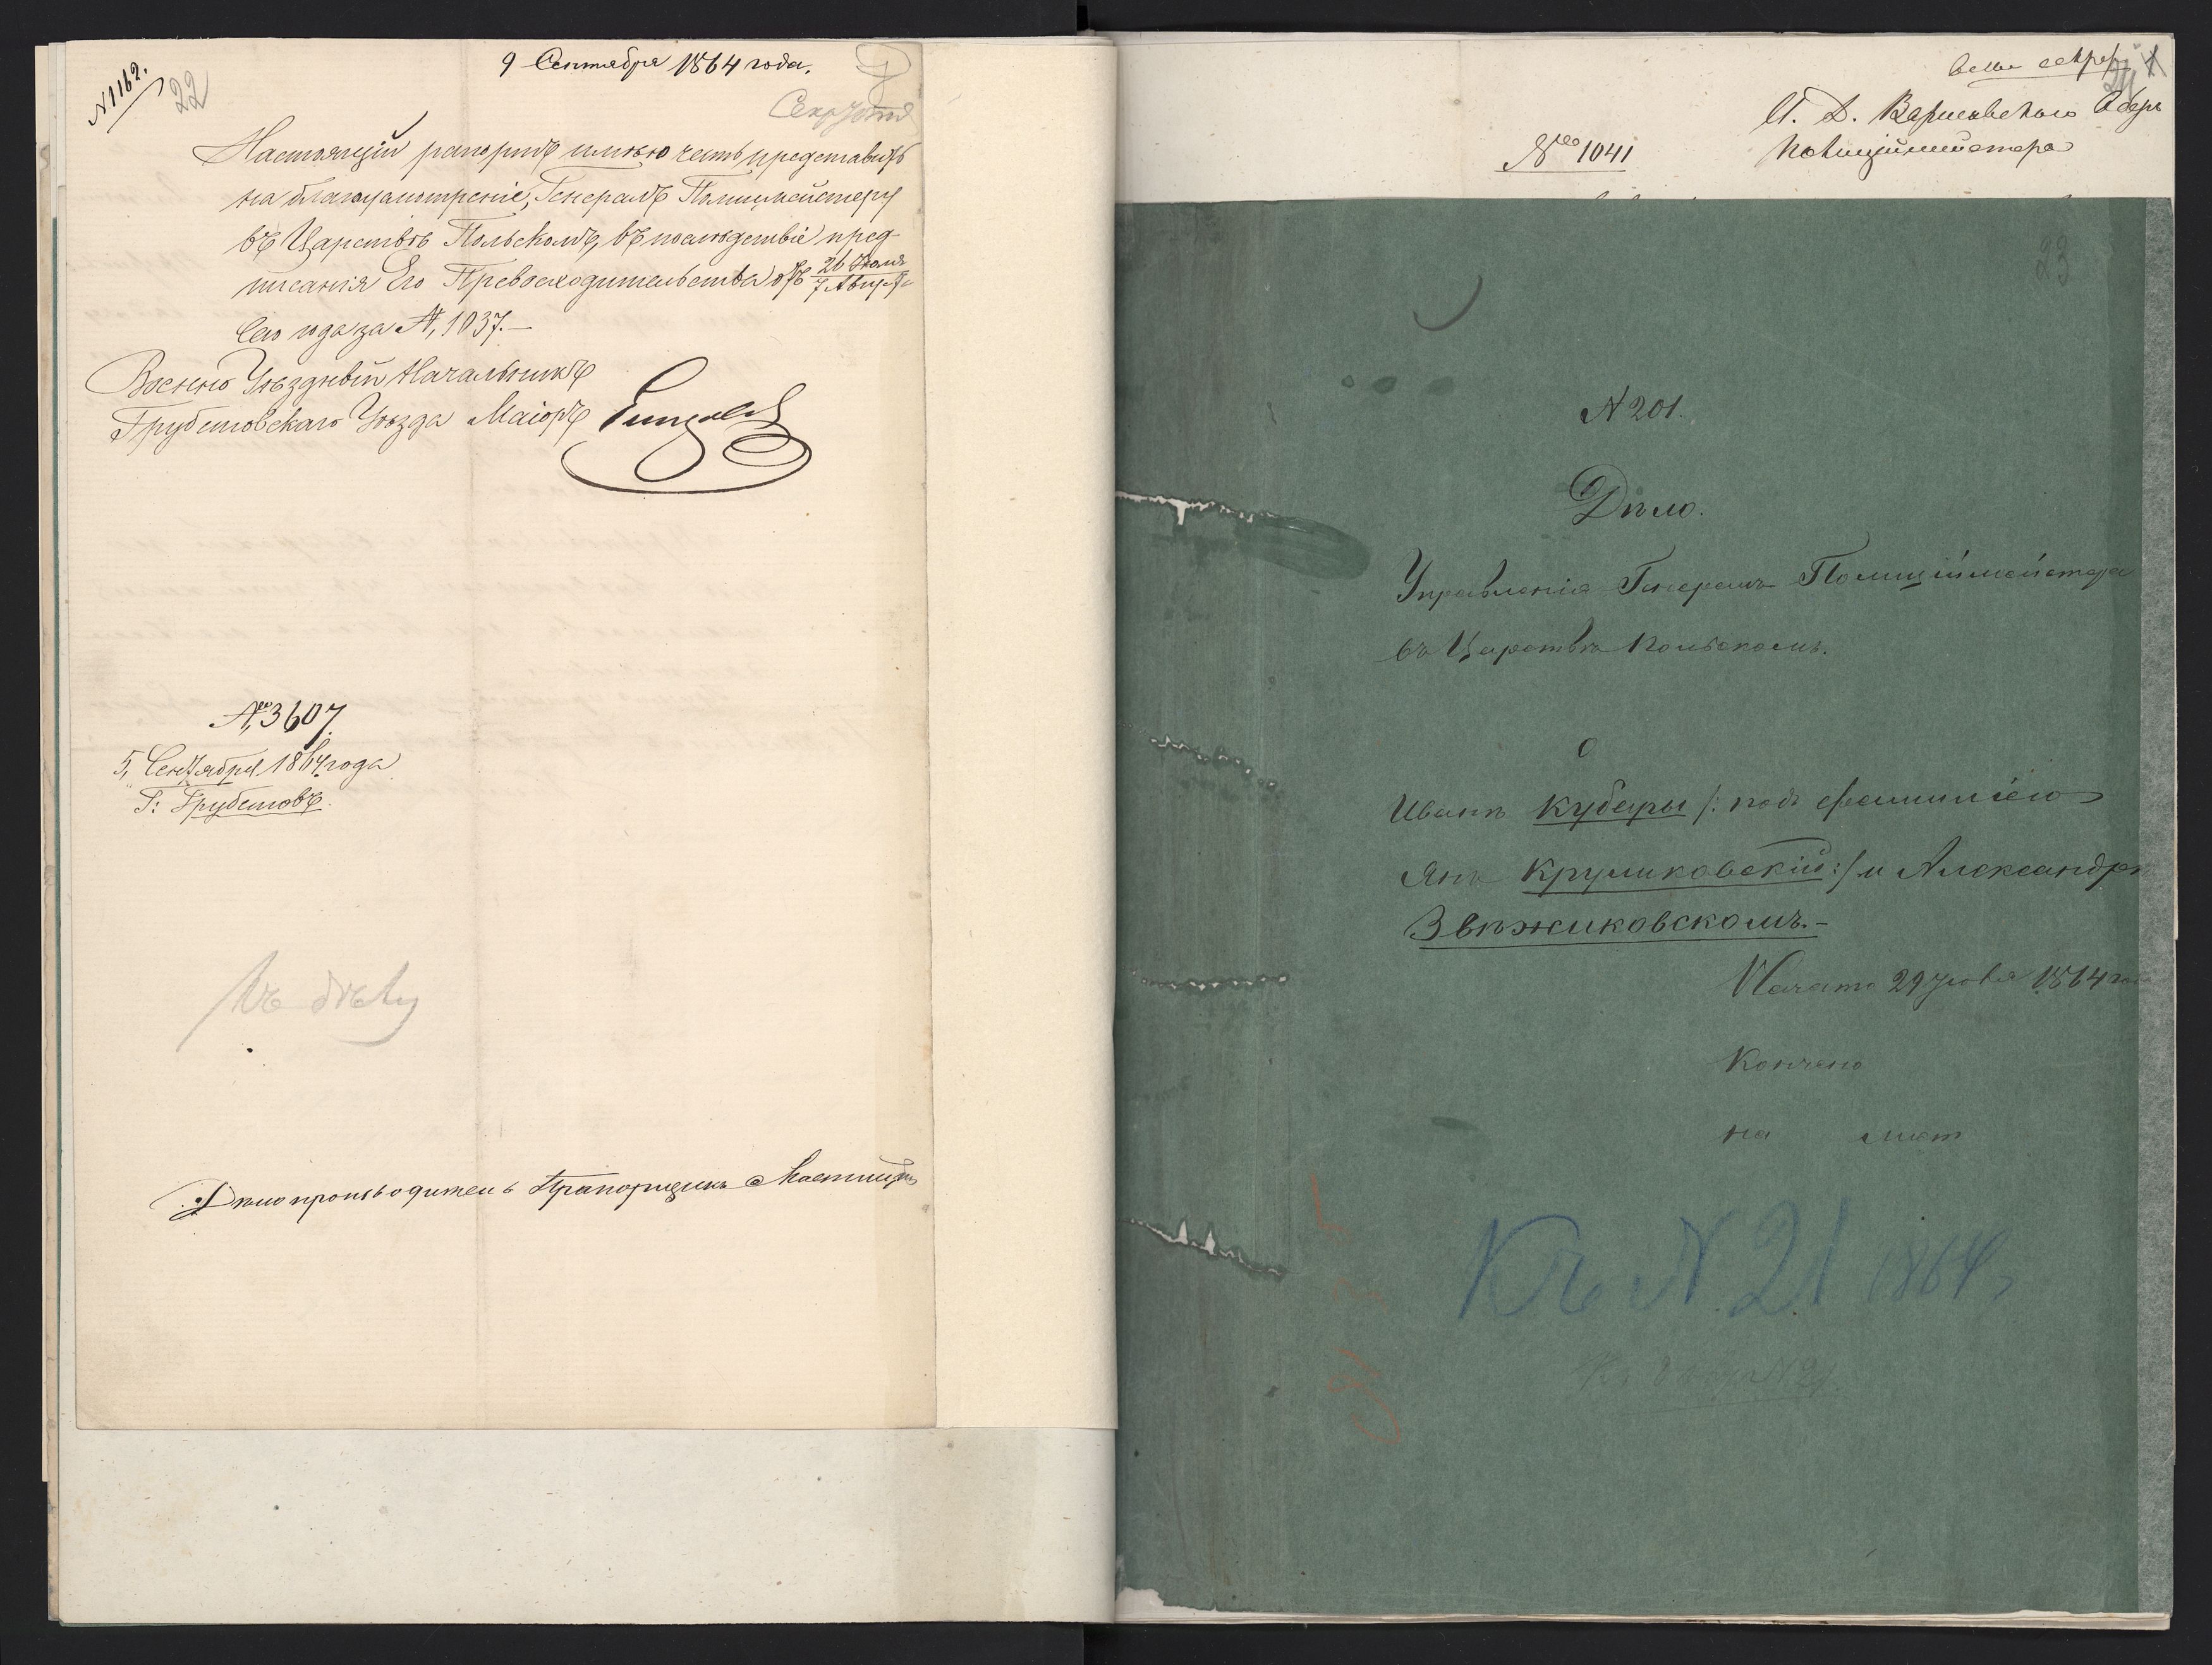 9 Сентября 1864 года.
№ 1162.
22
Секретно
Настоящій рапортъ имѣю честь представить
на благоусмотреніе, Генералъ Полицмейстеру
въ Царствѣ Польскомъ, въ послѣдствіе пред-
писанія Его Превосходительства отъ 26 Іюля / 7 Августа
сего года за №, 1037.—
Военно Уѣздный Начальникъ
Грубешовскаго Уѣзда Маіоръ
№ 3607.
5, Сентября 1864 года
Г: Грубешовъ.
Къ дѣлу
Дѣлопроизводитель Прапорщикъ
секрет
И. Д. Варшавскаго Оберъ
Полиціймейстера
№ 1041
23
№ 201.
Дѣло.
Управленія Генералъ Полиціймейстера
въ Царствѣ Польскомъ.
О
Иванѣ Кубары /: подъ фамиліею
Янъ Круликовскій :/ и Александрѣ
Звѣжиковскомъ.—
Начато 29 Іюля 1864 го
Кончено
на лист
Къ № 21 1864